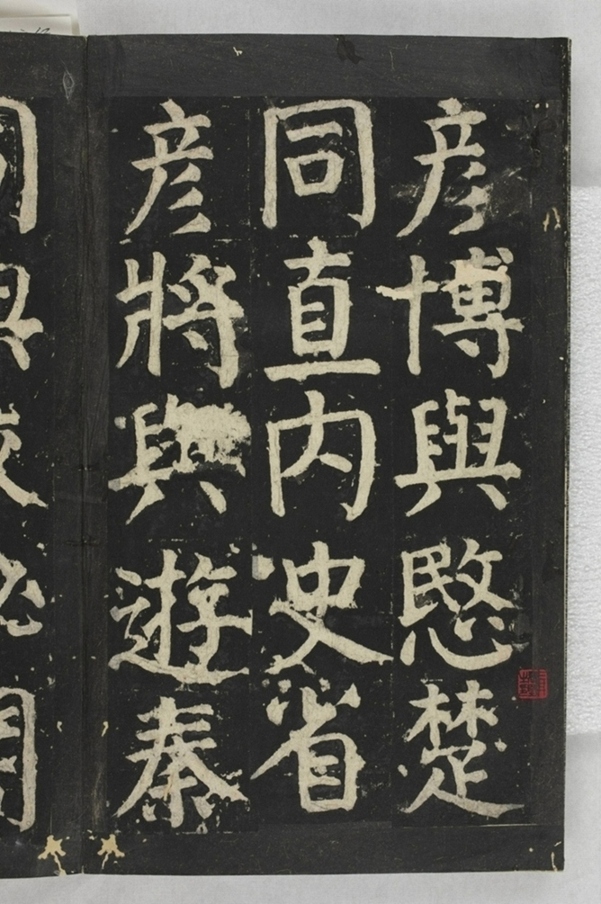 彦博與愍楚
同直内史省
彦將與遊秦